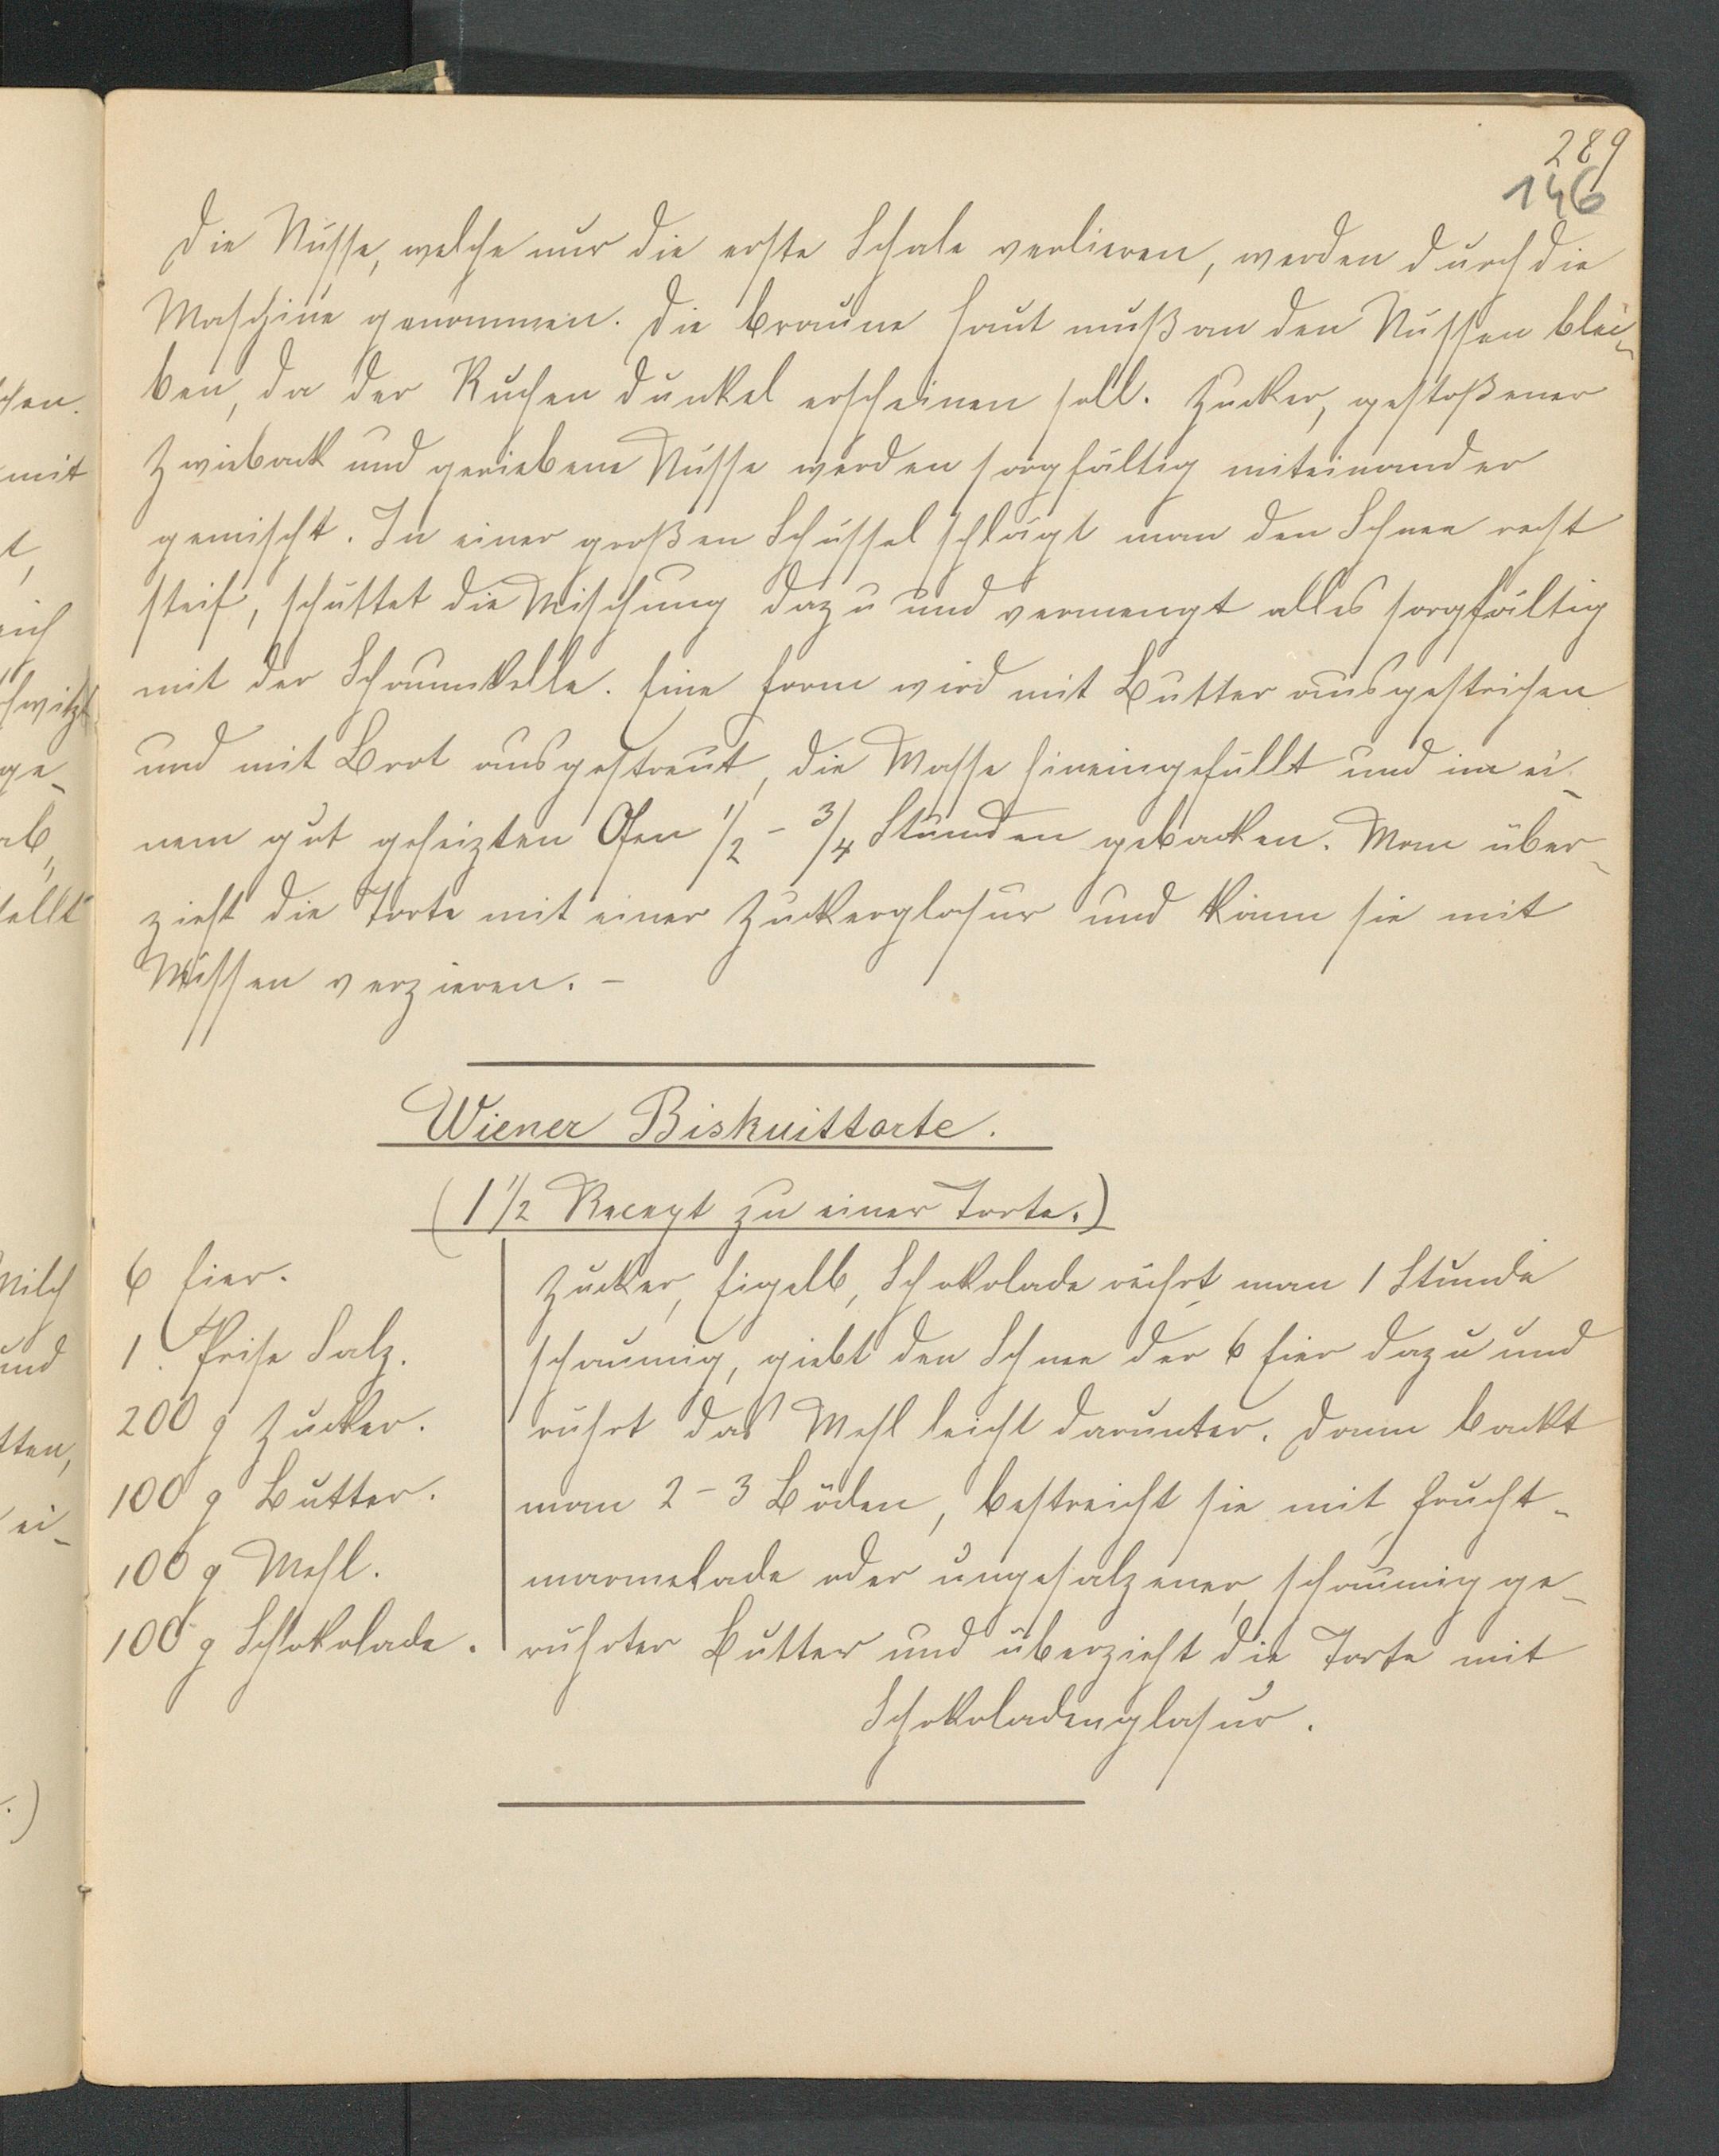 289
146
Die Nüsse, welche nur die erste Schale verlieren, werden durch die
Maschine genommen. Die braune Haut muß an den Nüssen blei-
ben, da der Kuchen dunkel erscheinen soll. Zucker, gestoßener
Zwieback und geriebene Nüsse werden sorgfältig miteinander
gemischt. In einer großen Schüssel schlägt man den Schnee recht
steif, schüttet die Mischung dazu und vermengt alles sorgfältig
mit der Schaumkelle. Eine Form wird mit Butter ausgestrichen
und mit Brot ausgestreut, die Masse hineingefüllt und in ei-
nem gut geheizten Ofen 1/2 - 3/4 Stunden gebacken. Man über-
zieht die Torte mit einer Zuckerglasur und kann sie mit
Nüssen verzieren. -
Wiener Biskuittorte.
(1 1/2 Recept zu einer Torte.)
6 Eier.
1. Prise Salz.
200 g Zucker.
100 g Butter.
100 g Mehl.
100 g Schokolade.
Zucker, Eigelb, Schokolade rührt man 1 Stunde
schaumig, giebt den Schnee der 6 Eier dazu und
rührt das Mehl leicht darunter. Dann backt
man 2 - 3 Böden, bestreicht sie mit Frucht-
marmelade oder ungesalzener, schaumig ge-
rührter Butter und überzieht die Torte mit
Schokoladenglasur.